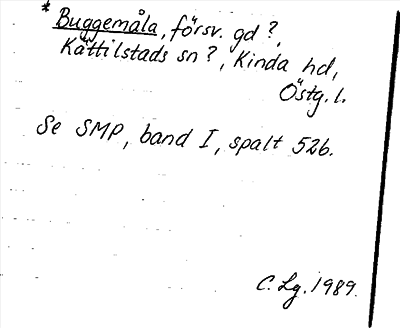 * Buggemåla, försv. gd ?,
Kättilstads sn ?, Kinda hd,
Östg. l.
Se SMP, band I, spalt 526.
C. Lg. 1989.